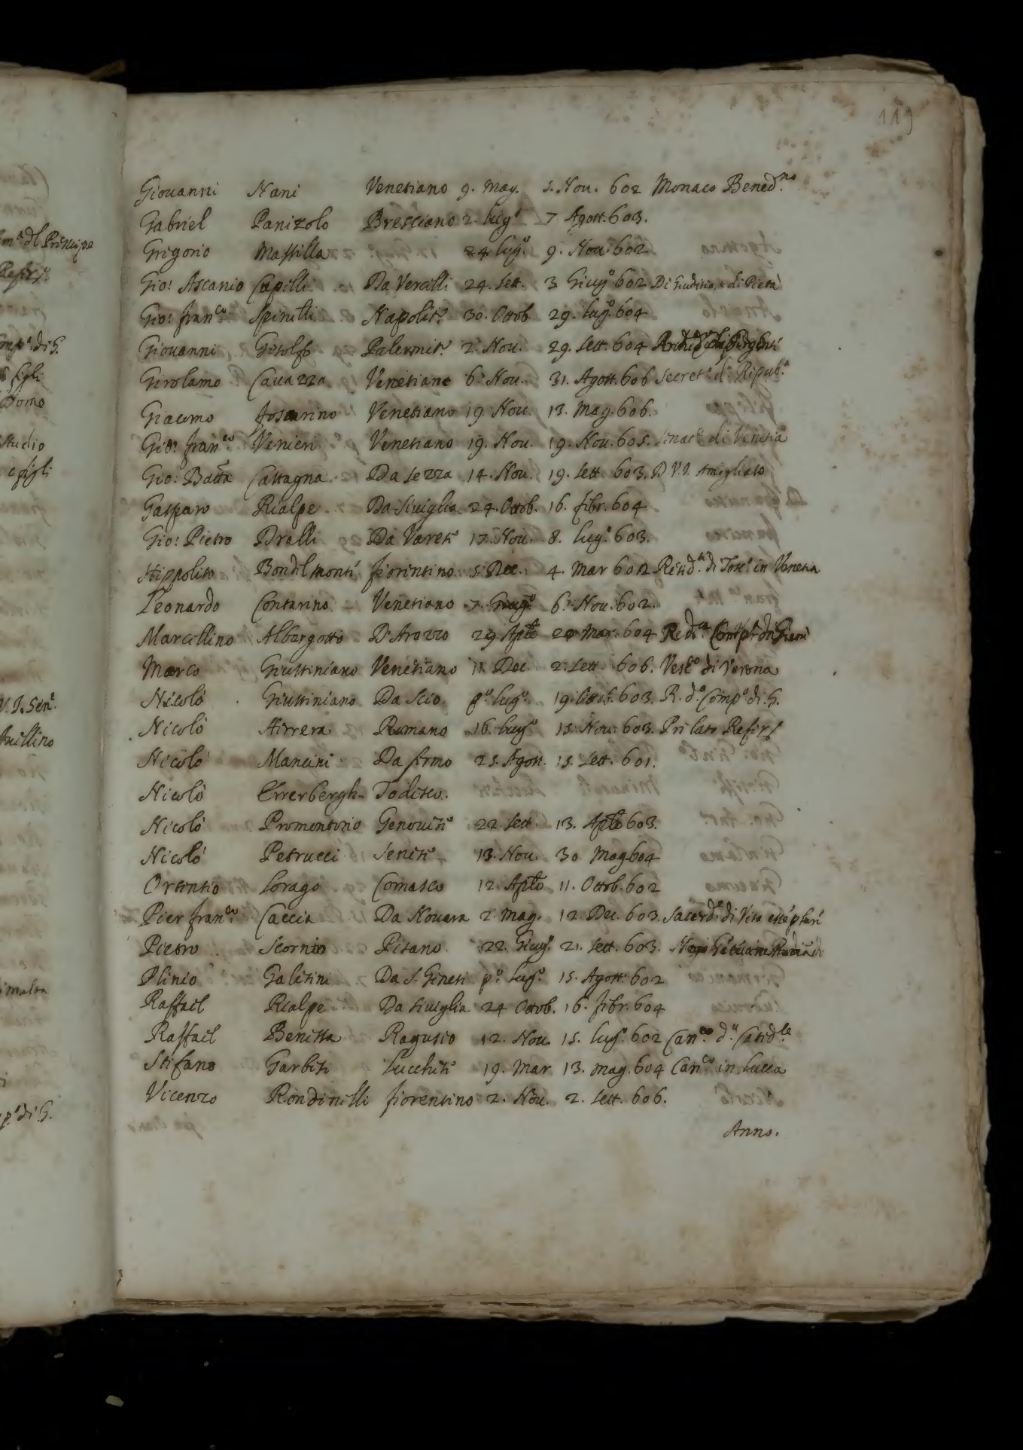 119
Giouanni Nani Venetiano 9. Mag. 5. Nou. 602 Monaco Bened.no
Gabriel Panizolo Bresciano 2. lugo 7 Agost. 603.
Grigorio Massilla 24. lugo. 9. Nou. 602.
Gio: Ascanio Capilli Da Vercilli 24. Sett. 3 Giugo 602 Di Giuditio, e di Pietà
Gio: franco Spinelli Napolito 30. Ottob. 29. lugo. 604
Giouanni Palermito 2. Nou. 29. Sett. 604
Girolamo Cauazza Venetiano 6. Nou. 31. Agost. 606 Secreto do Ripub.a
Giacomo foscarino Venetiano 19 Nou. 13. Mag. 606.
Gio: franco Venieri Venetiano 19. Nou. 19. Nou. 605. di Venetia
Gio: Batta Cattagna Da Sezza 14. Nou. 19. Sett. 603.
Gasparo Rialpe Da Siuiglia 24. Ottob. 16. fibr. 604
Gio: Pietro Bralli 17. Nou. 8. lugo 603.
Hippolito Bondelmonti fiorintino 5. Dec. 4. Mar 602 Resid.te di Tosc. in Venetia
Leonardo Contarino Venetiano 7. 6. Nou. 602.
Marcellino Albargotto D'Arezzo 29 Aple 24 Mar. 604
Marco Giustiniano Venetiano 11. Dec. 2. Sett. 606. Vesco di Verona
Nicolò Giustiniano Da Scio po. lugo. 19. Ottob. 603. R. da Compa di G.
Nicolò Hirrera Romano 16. lugo. 15. Nou. 603. Prilato Refer.
Nicolò Mancini Da firmo 25. Agost. 15. Sett. 601.
Nicolò Errerbergh Todisco.
Nicolò Promontorio Genouiso 22. Sett. 13. Aple 603.
Nicolò Petrucci Seniso 13. Nou. 30 Mag 604
Ortintio Lorago Comasco 12. Aple 11. Ottob. 602
Pier franco Caccia Da Nouara 2. Mag. 12. Dec. 603. Sacerdo di Vita
Pietro Scornio Pisano 22. Giugo. 21. Sett. 603.
Plinio Galitini Da S. Ginesi po. lugo. 15. Agost. 602
Raffail Rialpe Da Siuiglia 24 Ottob. 16. fibr. 604
Raffail Benissa Raguseo 12. Nou. 15. lugo. 602 Canco
Stifano Garbisi Lucchiso 19. Mar. 13. Mag. 604 Canco in Lucca
Vicenzo Rondinilli fiorentino 2. Nou. 2. Sett. 606.
Anno.